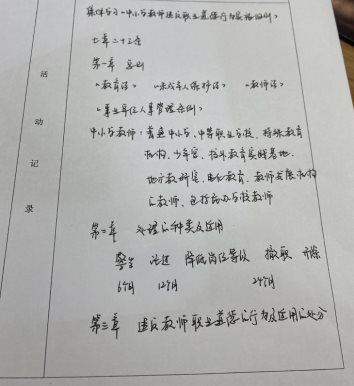 集体学习《中小学教师违反职业道德行为实施细则》
七章二十三条
第一章 总则
《教育法》 《未成年人保护法》 《教师法》
《事业单位人事管理条例》
中小学教师：普通中小学、中等职业学校、特殊教育
机构、少年宫、校外教育实践基地、
地方教研室、电化教育、教师发展机构
汇教师，包括民办学校教师
第二章 处理的种类及适用
警告 记过 降低岗位等级 撤职 开除
6个月 12个月 24个月
第三章 违反教师职业道德的行为及适用的处分
活动记录